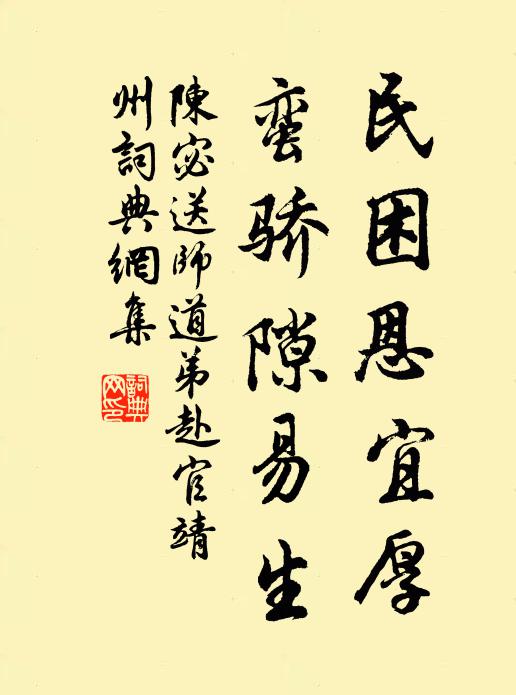 民困恩宜厚
蛮骄隙易生
陳宓送師道弟赴官靖
州詞典網集
詞典网印